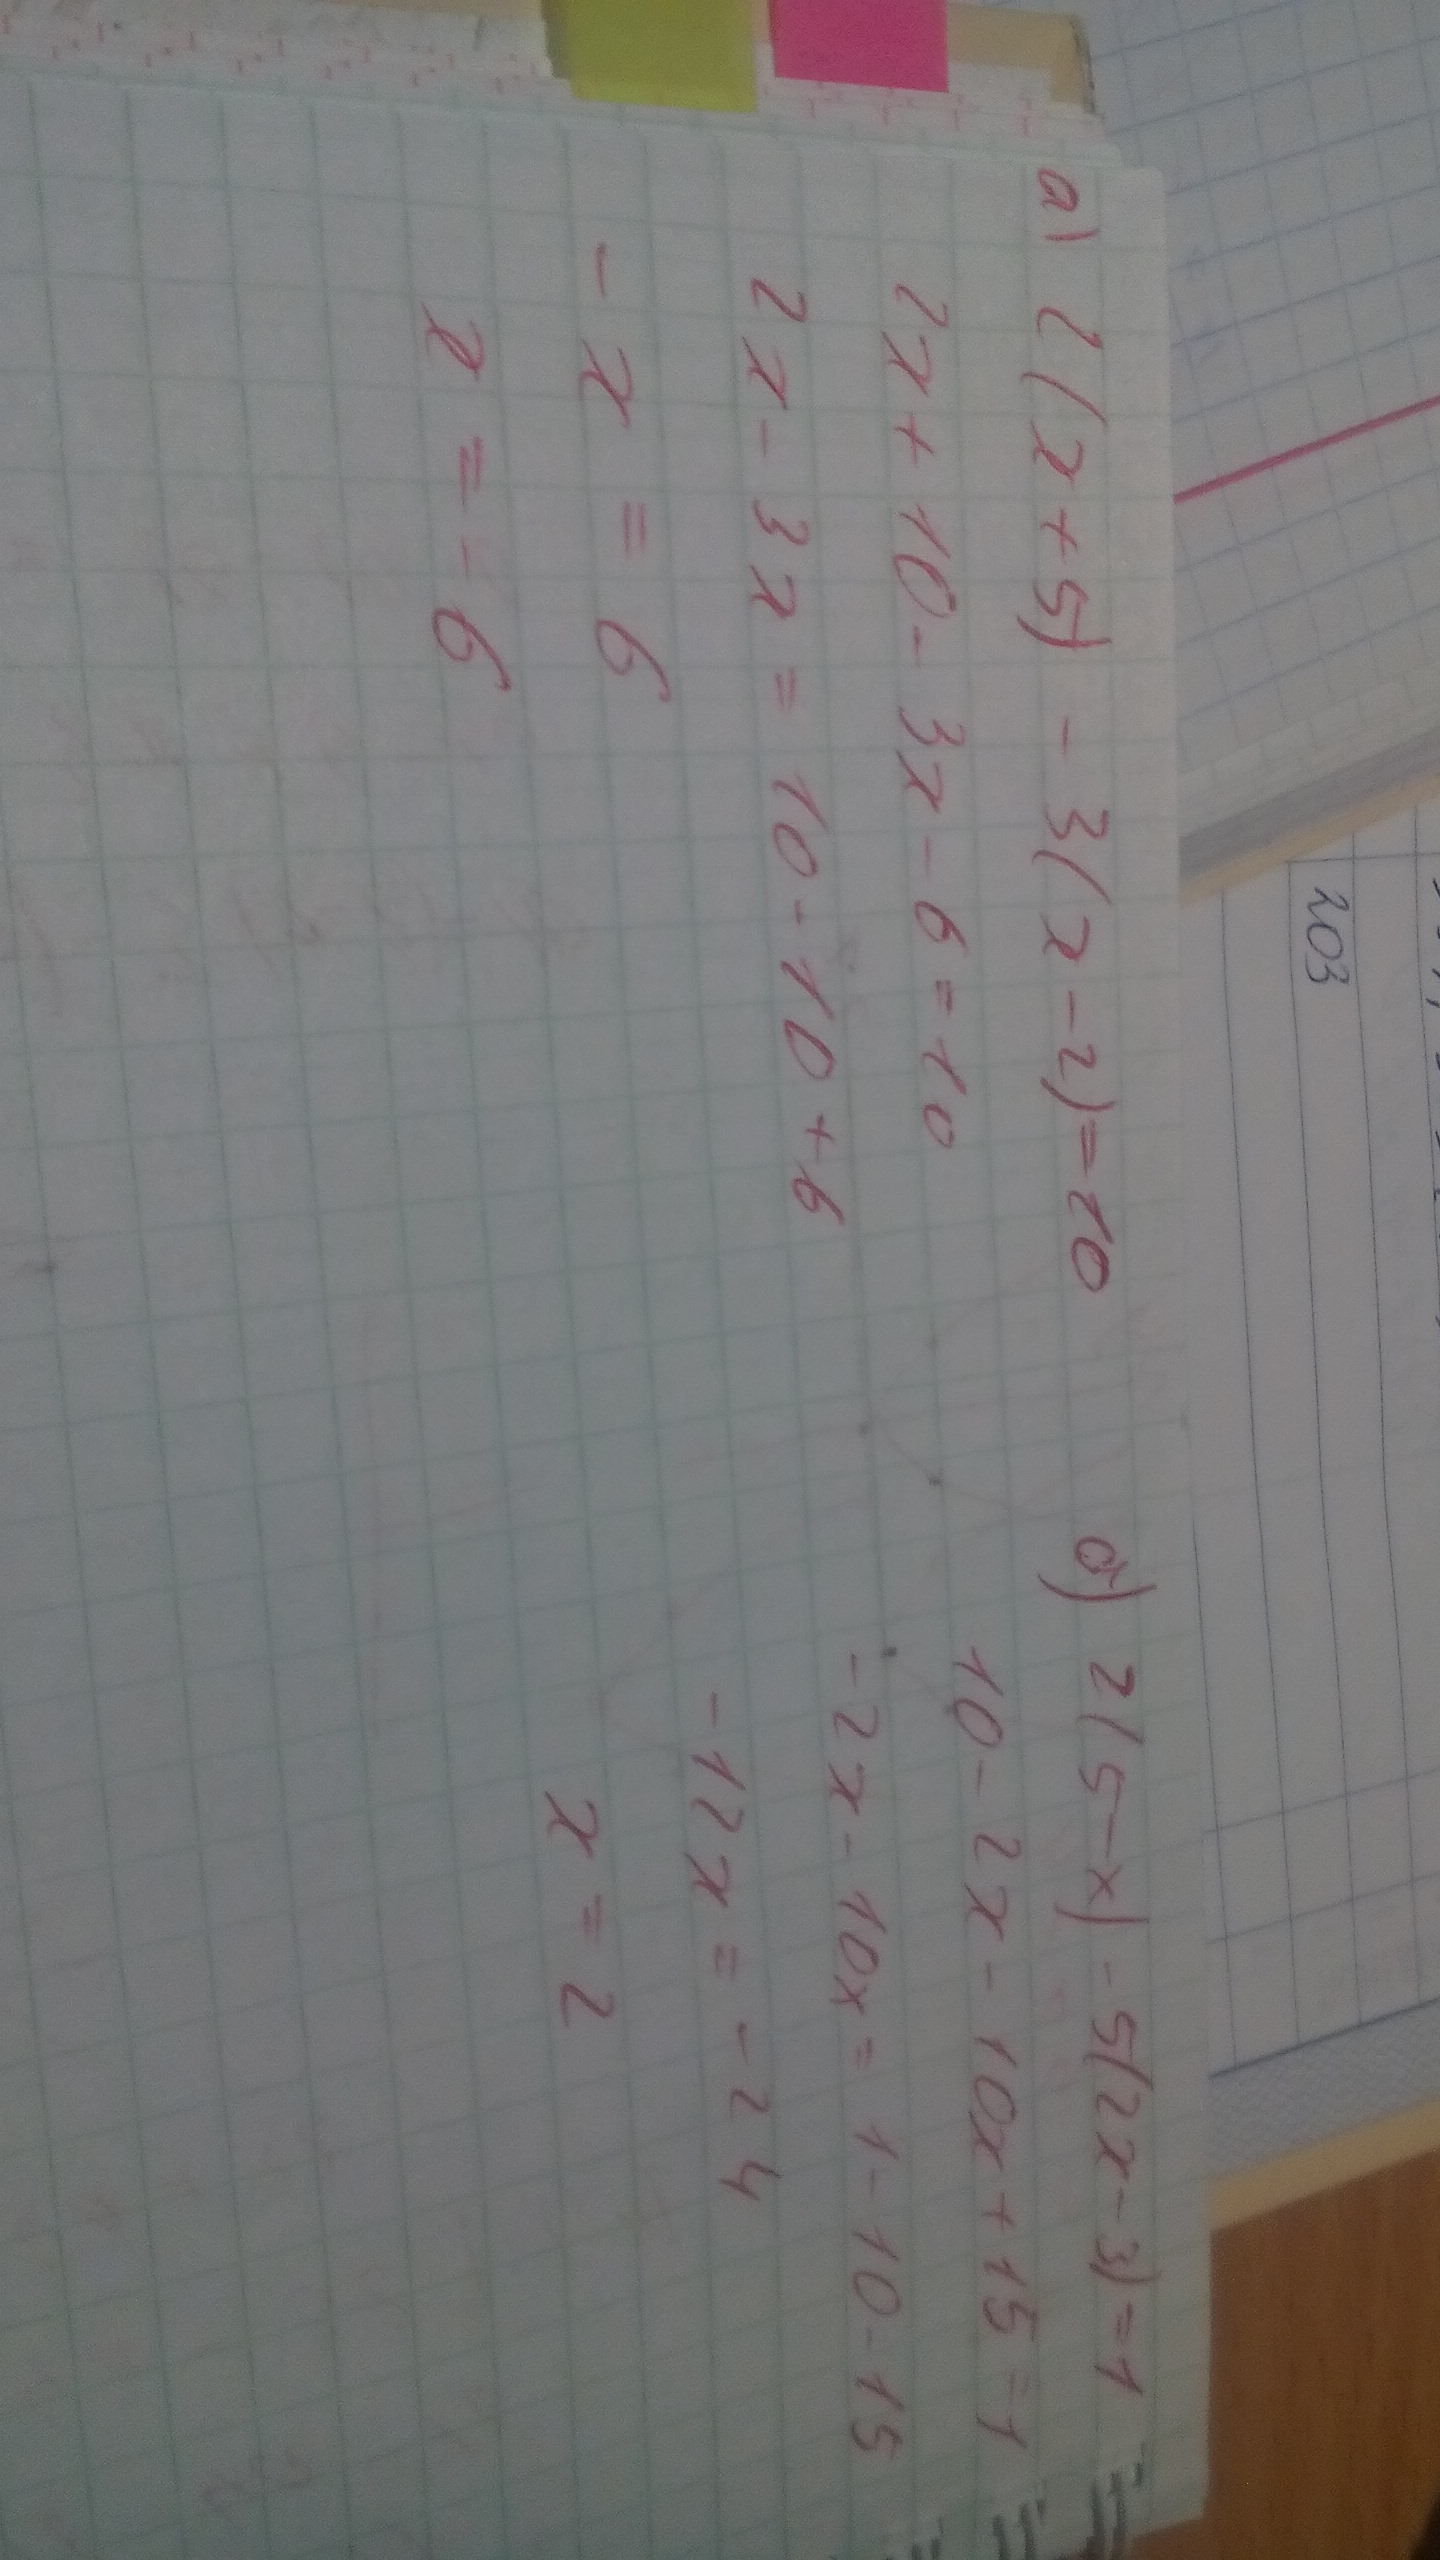 а) 2(x+5) - 3(x-2)=10
2x+10-3x-6=10
2x-3x=10-10+6
-x=6
x=-6
б) 2(5-x)-5(2x-3)=1
10-2x-10x+15=1
-2x-10x=1-10-15
-12x=-24
x=2
203